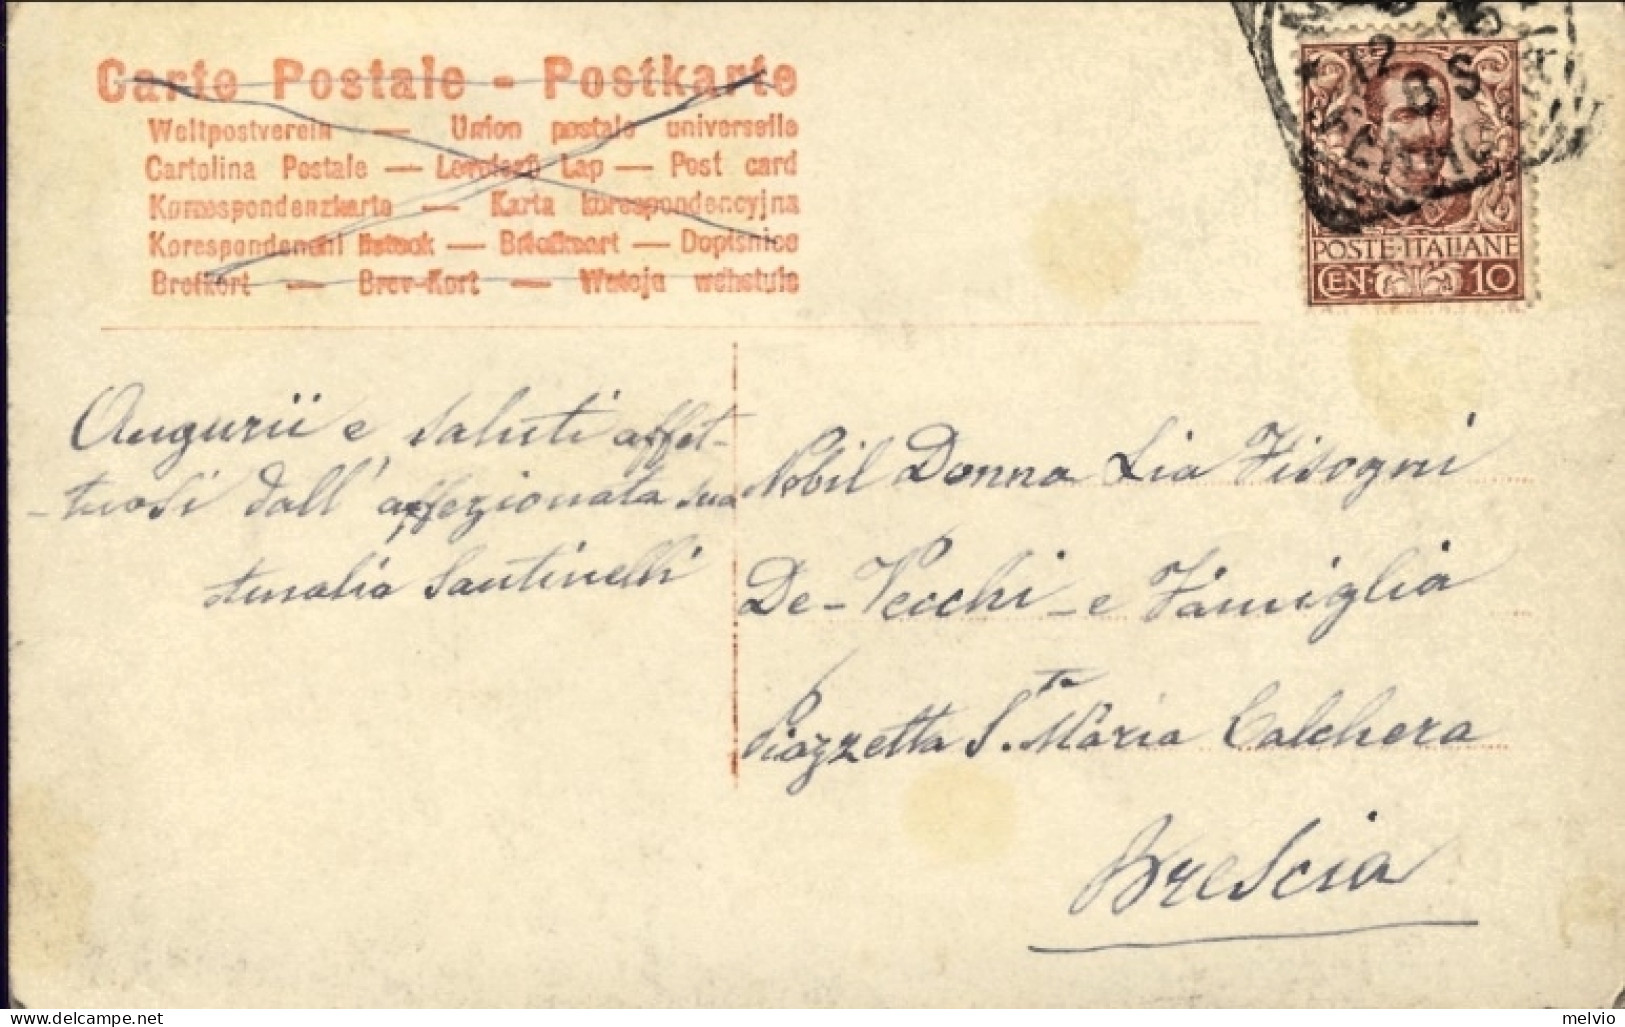 Carte Postale - Postkarte
Weltpostverein — Union postale universelle
Cartolina Postale — Levelező Lap — Post card
Korrespondenzkarte — Karta korespondencyjna
Korespondenční lístek — Briefkaart — Dopisnice
Brefkort — Brev-Kort —
POSTE·ITALIANE
CENT. 10
Augurii e saluti affet-
-tuosi dall' affezionata sua
Amalia Santinelli
Nobil Donna Lia Fisogni
De-Vecchi e Famiglia
Piazzetta S.ta Maria Calchera
Brescia
delcampe.net
melvio